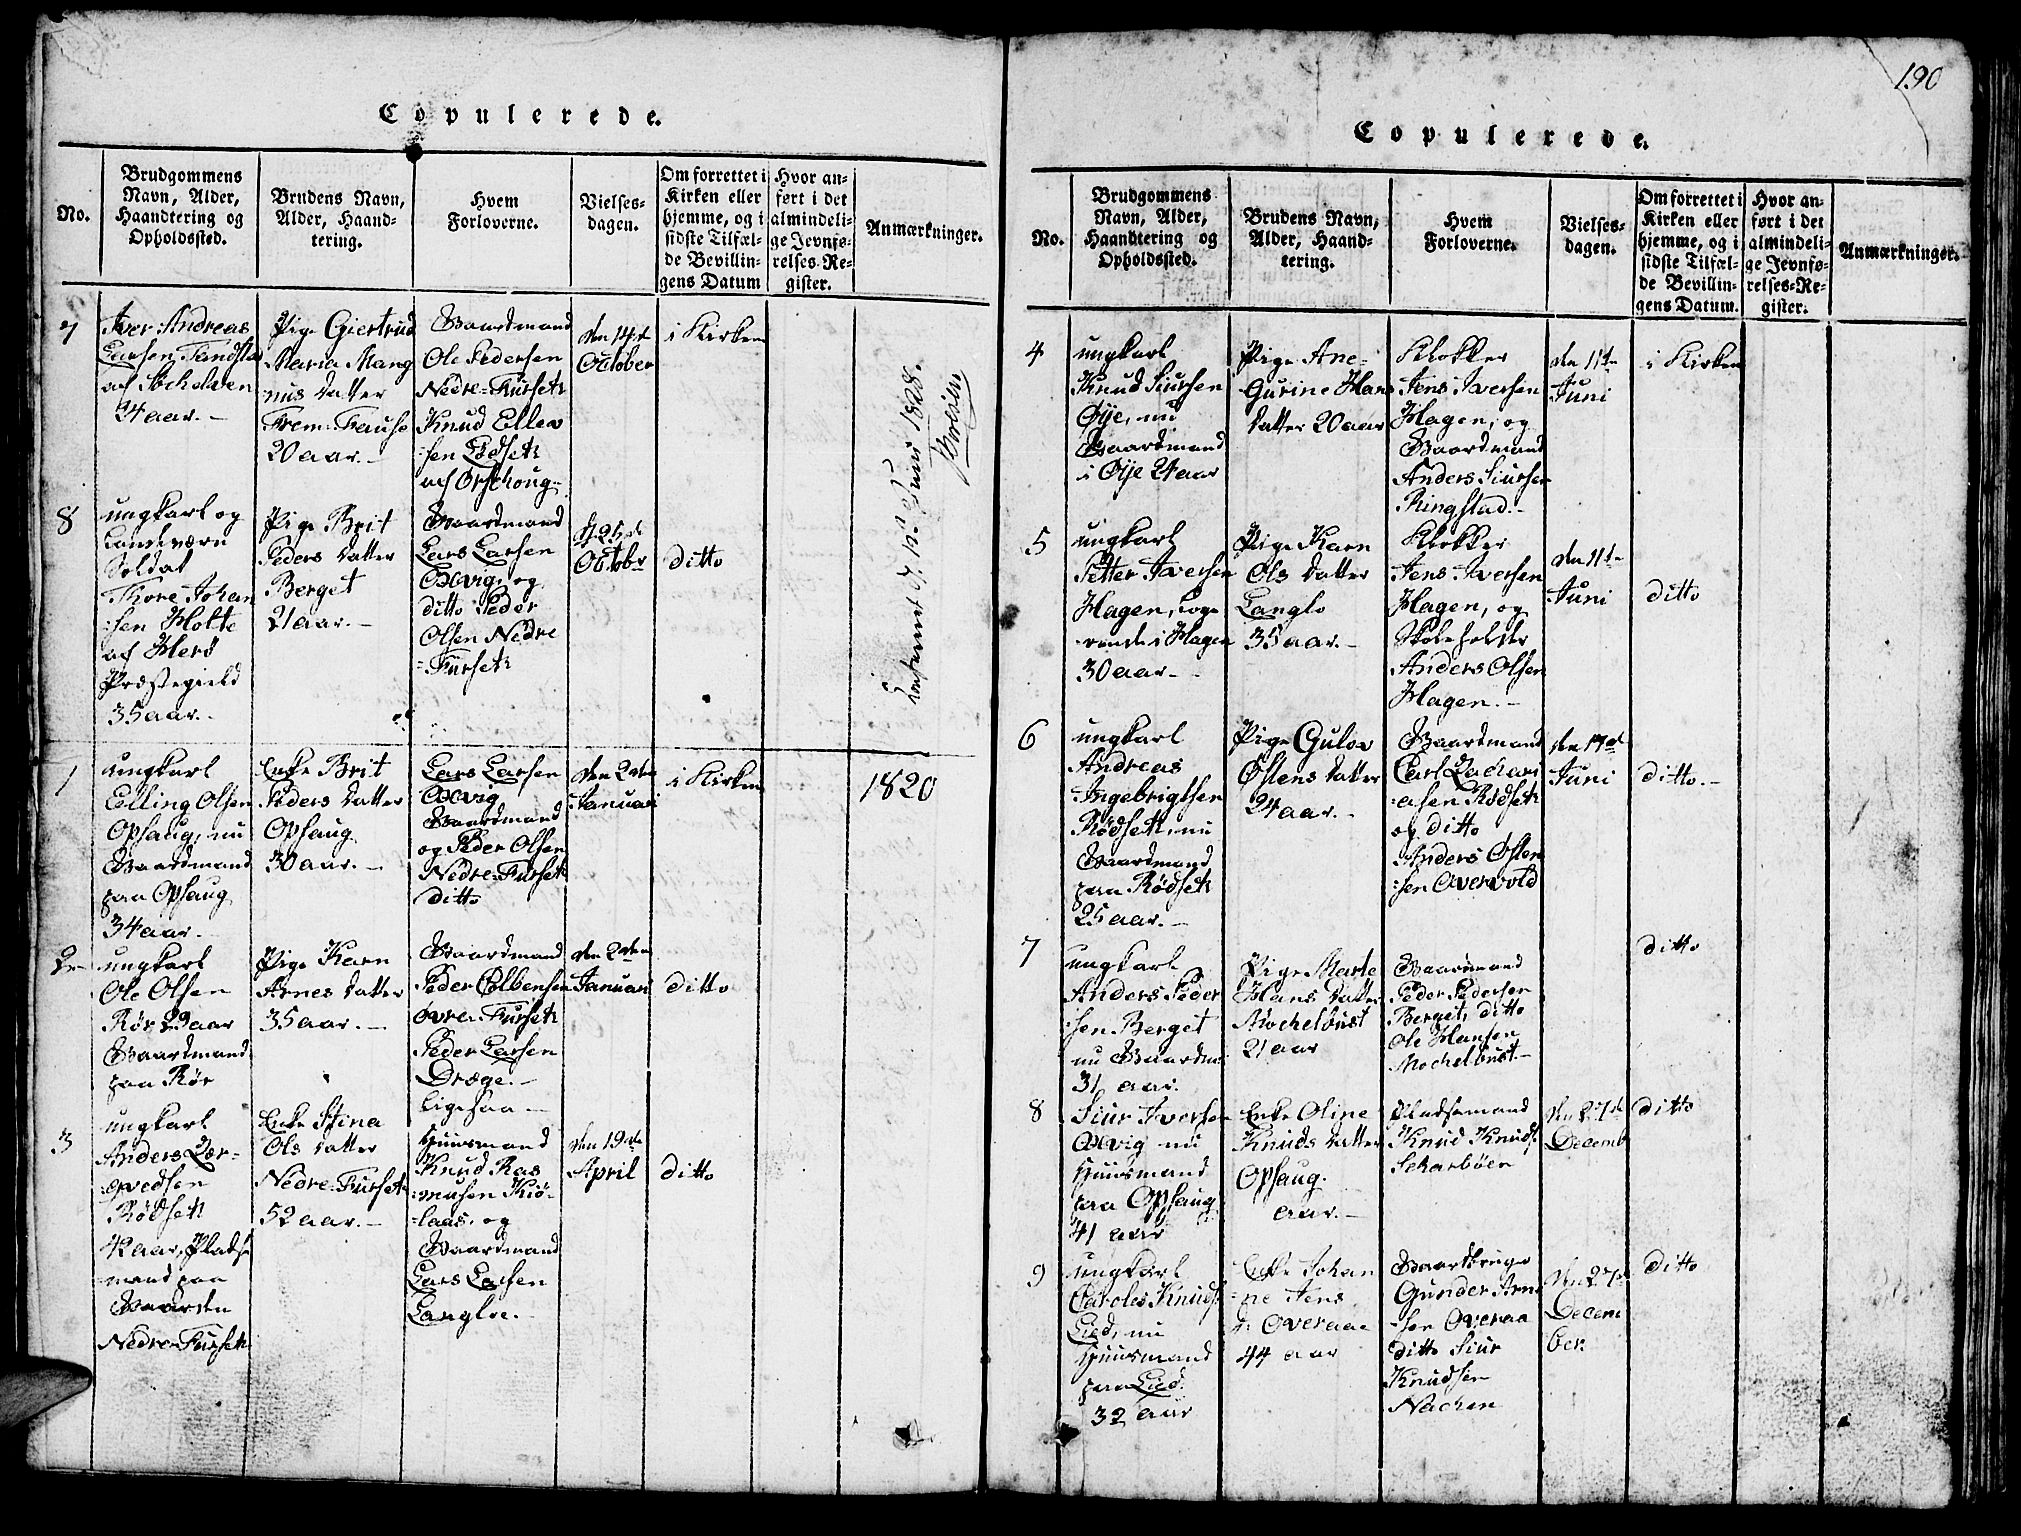 190
Copulerede.
No.
Brudgommens
Navn, Alder,
Haandtering og
Opholdssted.
Brudens Navn,
Alder, Haand-
tering.
Hvem
Forloverne.
Vielses-
dagen.
Om forrettet i
Kirken eller
hjemme, og i
sidste Tilfæl-
de Bevillin-
gens Datum
Hvor an-
ført i det
almindeli-
ge Jevnfø-
relses-Re-
gister.
Anmærkninger.
7
Iver Andreas
Larsen
af
24 aar. -
Pige Giertrud
Maria Mang
nus Datter
20 aar. -
Gaardmand
Ole Pedersen
Nedre-Furseth
Knud Ellev
-sen
af Ørschoug-
den 14de
October
i Kirken
8
ungkarl og
Landværn
Soldat
Thore Johan
-sen Holte
af Herö
Præstegield
35 aar. -
Pige Brit
Peders Datter
Berget
21 aar. -
Gaardmand
Lars Larsen
Oxvig, og
ditto Peder
Olsen Nedre
-Furseth
d. 25de
Octobr
ditto
Juni 1828.
1
ungkarl
Elling Olsen
Opsaug, nu
Gaardmand
paa Opsaug
34 aar. -
Enke Brit
Peders Datter
Opsaug
30 aar. -
Lars Larsen
Oxvig
Gaardmand
og Peder Olsen
Nedre-Furseth
ditto
den 2den
Januari
i Kirken
1820
2
ungkarl
Ole Olsen
Rör, 29 aar
Gaardmand
paa Rör
Pige Karn
Arnes Datter
35 aar. -
Gaardmand
Peder Colbensen
övre-Furseth
Peder Larsen
Dræge. -
ligesaa -
den 2den
Januari
ditto
3
ungkarl
Anders
Rødseth
42 aar, Plads
mand paa
Gaarden
Nedre-Furseth
Enke Stina
Ols Datter
Nedre-Furseth
52 aar. -
Huusmand
Knud Ras
-musen Kiö-
-laas, og
Gaardmand
Lars Larsen
Langloe. -
den 19de
April
ditto
Copulerede.
No.
Brudgommens
Navn, Alder,
Haandtering og
Opholdssted.
Brudens Navn,
Alder, Haand-
tering.
Hvem
Forloverne.
Vielses-
dagen.
Om forrettet i
Kirken eller
hjemme, og i
sidste Tilfæl-
de Bevillin-
gens Datum.
Hvor an-
ført i det
almindeli-
ge Jevnfø-
relses-Re-
gister.
Anmærkninger.
4
ungkarl
Knud Siursen
Øye, nu
Gaardmand
i Øye 24 aar
Pige Ane-
Gurine Hans
Datter 20 aar
Klokker
Jens Iversen
Hagen, og
Gaardmand
Anders Siursen
Ringstad. -
den 11te
Juni
i Kirken
5
ungkarl
Petter Iversen
Hagen, Loge
-rende i Hagen
30 aar. -
Pige Karn
Ols Datter
Langlo
35 aar. -
Klokker
Jens Iversen
Hagen, og
Skoleholder
Anders Olsen
Hagen. -
den 11te
Juni
ditto
6
ungkarl
Andreas
Ingebrigtsen
Rödseth, nu
Gaardmand
paa Rødseth
25 aar. -
Pige Gulov
Østens Datter
24 aar. -
Gaardmand
Carl Zachari
-asen Rødseth
og ditto
Anders Østen
-sen Overvold
den 17de
Juni
ditto. -
7
ungkarl
Anders Peder
-sen Berget
nu Gaardm:
31 aar.
Pige Marte
Hans Datter
Mochelbust
21 aar
Gaardmand
Peder Pedersen
Berget, ditto
Ole Hansen
Mochelbust. -
ditto
8
Siur Iversen
Oxvig nu
Huusmand
paa Opsaug
41 aar
Enke Oline
Knuds Datter
Opsaug.
aar. -
Pladsemand
Knud Knuds
Scharböen
den 27de
Decemb
ditto
9
ungkarl
Caroles Knuds
Lied, nu
Huusmand
paa Lied.
32 aar
Enke Johan
-ne Jens
Overaae
44 aar
Gaardbruger
Gunder Arne
-sen Overaa
ditto Siur
Knudsen
Nachen
den 27de
Decem
ber.
ditto